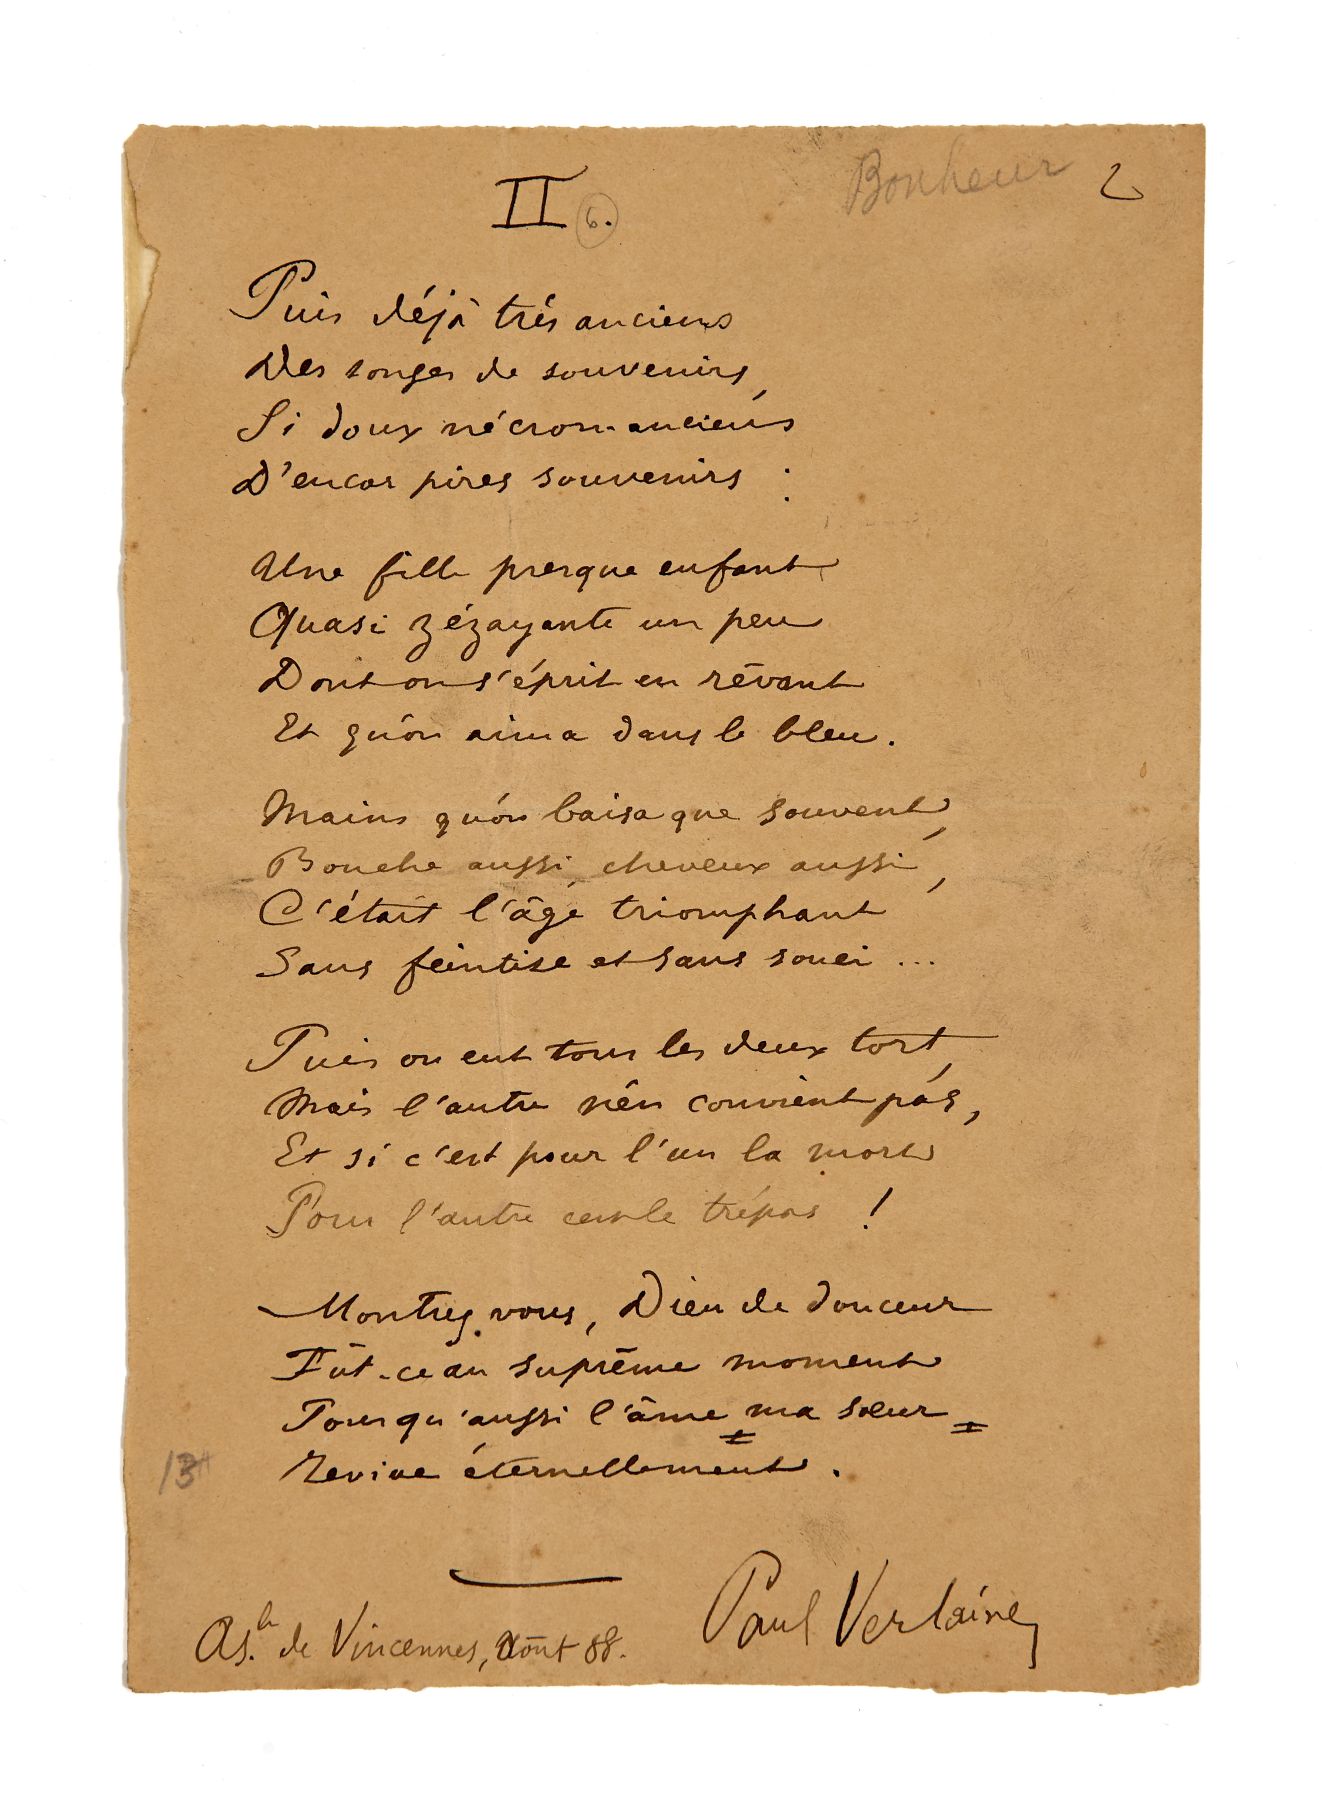 Bonheur 2
II 6.
Puis déjà très anciens
Des songes de souvenirs,
Si doux nécromanciens
D'encor pires souvenirs :
Une fille presque enfant
Quasi zézayante un peu
Dont on s'éprit en rêvant
Et qu'on aima dans le bleu.
Mains qu'on baisa que souvent,
Bouche aussi, cheveux aussi,
C'était l'âge triomphant
Sans feintise et sans souci ...
Puis on eut tous les deux tort,
Mais l'autre n'en convient pas,
Et si c'est pour l'un la mort
Pour l'autre c'est le trépas !
Montrez vous, Dieu de douceur
Fût-ce au suprême moment
Pour qu'aussi l'âme ma sœur
Revive éternellement.
13
As.le de Vincennes, Août 88.
Paul Verlaine